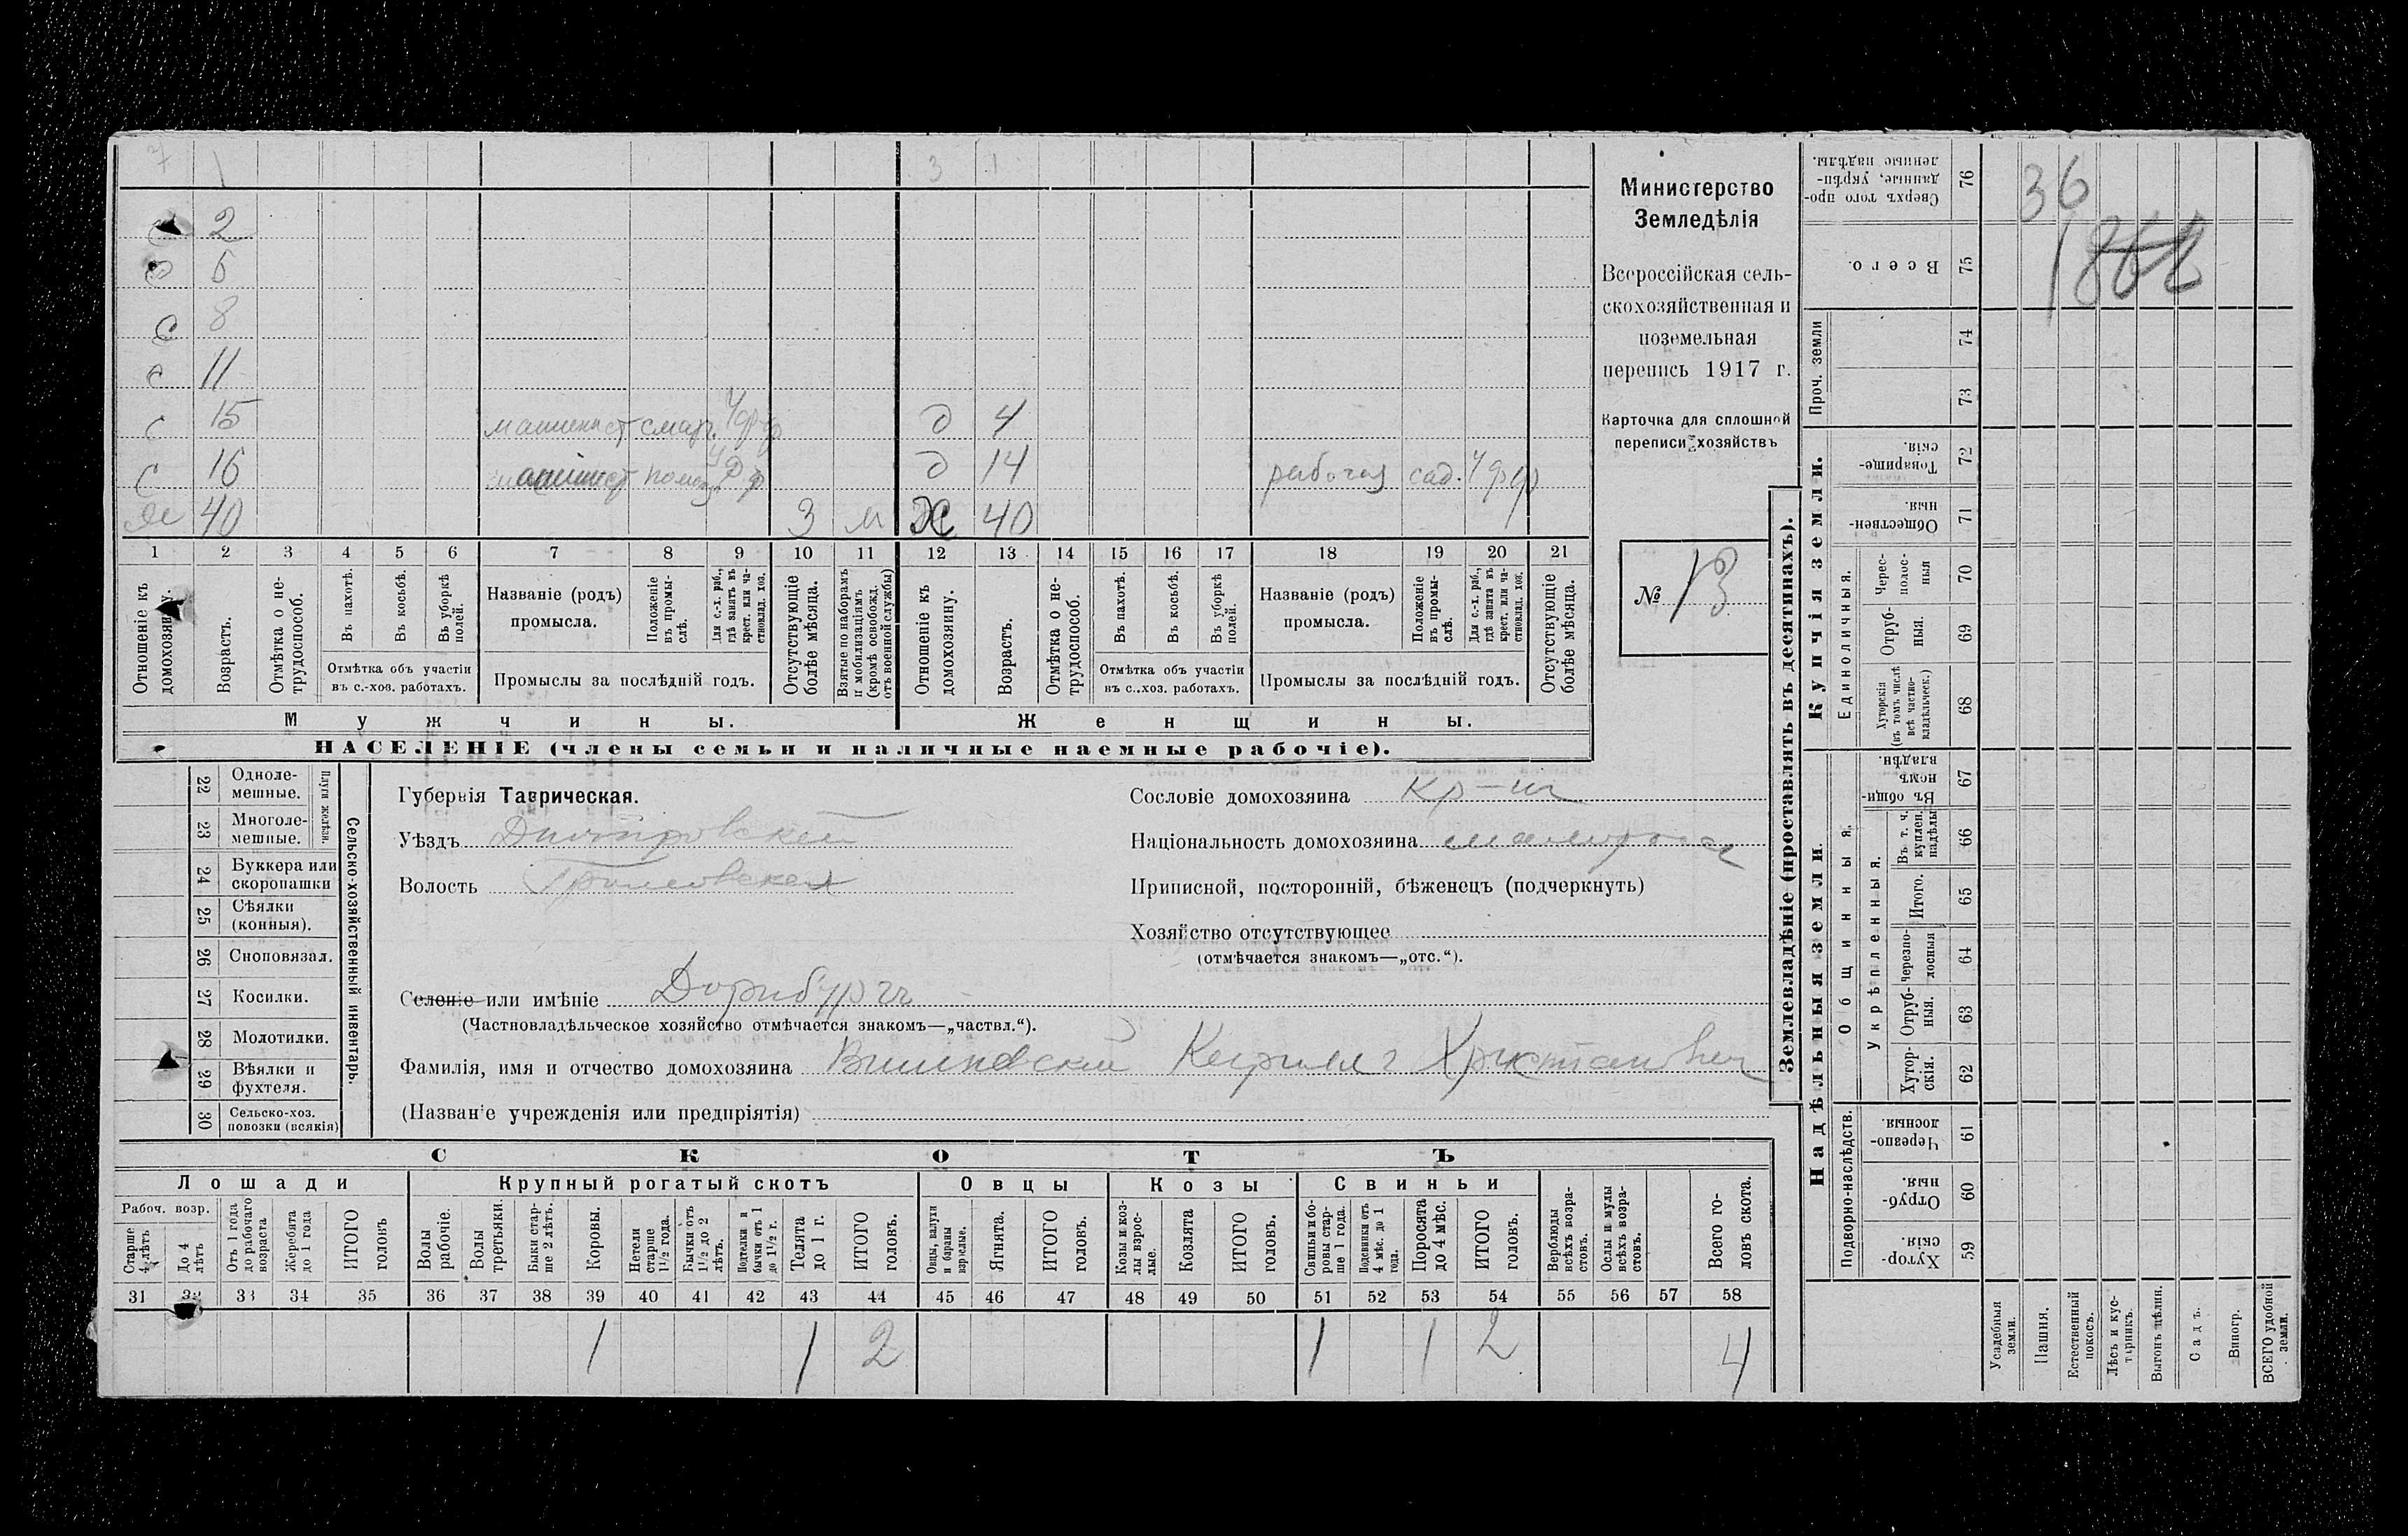 7 1 3 1
с 2
с 5
с 8
с 11
с 15 машинист смар. Ч ф ф д 4
с 16 машинист Ч ф ф д 14 рабочая сад. Ч ф ф
40 3 м Ж 40
1 2 3 4 5 6 7 8 9 10 11 12 13 14 15 16 17 18 19 20 21
Отношеніе къ домохозяину.
Возрастъ.
Отмѣтка о не-трудоспособ.
Въ пахотѣ.
Въ косьбѣ.
Въ уборкѣ полей.
Отмѣтка объ участіи въ с.-хоз. работахъ.
Названіе (родъ) промысла.
Положеніе въ промы-слѣ.
Для с.-х. раб., гдѣ занятъ въ крест. или ча-стновлад. хоз.
Промыслы за послѣдній годъ.
Отсутствующіе болѣе мѣсяца.
Взятые по наборамъ и мобилизаціямъ (кромѣ освобожд. отъ военной службы)
Отношеніе къ домохозяину.
Возрастъ.
Отмѣтка о не-трудоспособ.
Въ пахотѣ.
Въ косьбѣ.
Въ уборкѣ полей.
Отмѣтка объ участіи въ с.-хоз. работахъ.
Названіе (родъ) промысла.
Положеніе въ промы-слѣ.
Для с.-х. раб., гдѣ занята въ крест. или ча-стновлад. хоз.
Промыслы за послѣдній годъ.
Отсутствующіе болѣе мѣсяца.
Мужчины. Женщины.
НАСЕЛЕНІЕ (члены семьи и наличные наемные рабочіе).
Министерство
Земледѣлія
Всероссійская сель-
скохозяйственная и
поземельная
перепись 1917 г.
Карточка для сплошной
переписи хозяйствъ
№ 13
22 Одноле-мешные.
23 Многоле-мешные.
Плуги желѣзн.
24 Буккера или скоропашки
25 Сѣялки (конныя).
26 Сноповязал.
27 Косилки.
28 Молотилки.
29 Вѣялки и фухтеля.
30 Сельско-хоз. повозки (всякія)
Сельско-хозяйственный инвентарь.
Губернія Таврическая.
Уѣздъ Днѣпровскій
Волость
Селеніе или имѣніе Дорнбургъ
(Частновладѣльческое хозяйство отмѣчается знакомъ—„частвл.“).
Фамилія, имя и отчество домохозяина Вишневскій Кириллъ
(Названіе учрежденія или предпріятія)
Сословіе домохозяина кр-нъ
Національность домохозяина малороссъ
Приписной, посторонній, бѣженецъ (подчеркнуть)
Хозяйство отсутствующее
(отмѣчается знакомъ—„отс.“).
СКОТЪ
Лошади Крупный рогатый скотъ Овцы Козы Свиньи
Рабоч. возр.
Старше 4 лѣтъ
До 4 лѣтъ
Отъ 1 года до рабочаго возраста
Жеребята до 1 года
ИТОГО головъ
Волы рабочіе.
Волы третьяки.
Быки стар-ше 2 лѣтъ.
Коровы.
Нетели старше 1½ года.
Бычки отъ 1½ до 2 лѣтъ.
Подтелки и бычки отъ 1 до 1½ г.
Телята до 1 г.
ИТОГО головъ.
Овцы, валухи и бараны взрослые.
Ягнята.
ИТОГО головъ.
Козы и коз-лы взрос-лые.
Козлята
ИТОГО головъ.
Свиньи и бо-ровы стар-ше 1 года.
Подсвинки отъ 4 мѣс. до 1 года.
Поросята до 4 мѣс.
ИТОГО головъ.
Верблюды всѣхъ возра-стовъ.
Ослы и мулы всѣхъ возра-стовъ.
Всего го-ловъ скота.
31 32 33 34 35 36 37 38 39 40 41 42 43 44 45 46 47 48 49 50 51 52 53 54 55 56 57 58
1 1 2 1 1 2 4
Землевладѣніе (проставлять въ десятинахъ).
Надѣльныя земли. Купчія земли. Проч. земли
Подворно-наслѣдств. Общинныя. Укрѣпленныя. Единоличныя.
76 Сверхъ того про-данные, укрѣп-ленные надѣлы.
75 Всего.
74
73
72 Товарище-скія.
71 Обществен-ныя.
70 Черес-полос-ныя
69 Отруб-ныя.
68 Хуторскія (въ томъ числѣ всѣ частно-владѣльческ.)
67 Въ общин-номъ владѣн.
66 Въ т. ч. куплен. надѣлы
65 Итого.
64 Черезпо-лосныя
63 Отруб-ныя.
62 Хутор-скія.
61 Черезпо-лосныя.
60 Отруб-ныя.
59 Хутор-скія.
36
Усадебныя земли.
Пашня.
Естественный покосъ.
Лѣсъ и кус-тарникъ.
Выгонъ цѣлин.
Садъ.
Виногр.
ВСЕГО удобной земли.